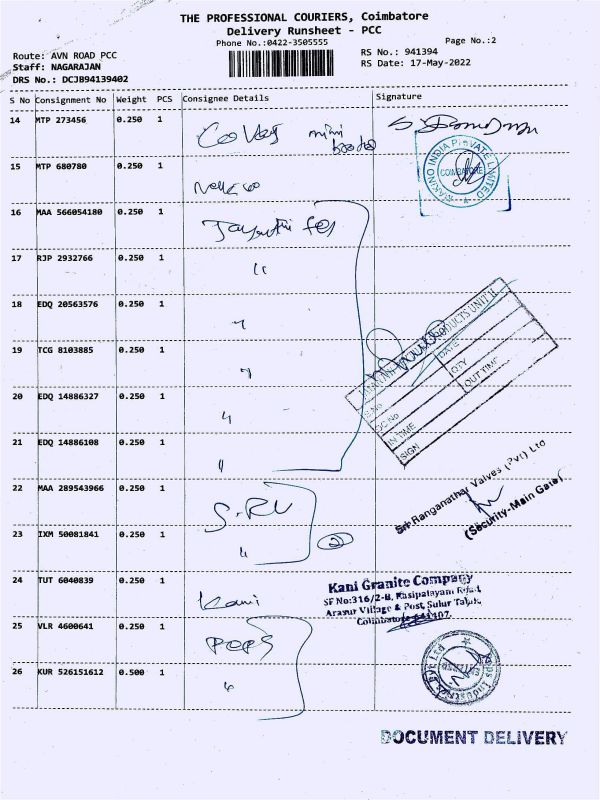 THE PROFESSIONAL COURIERS, Coimbatore
Delivery Runsheet - PCC
Phone No.:0422-3505555
Page No.:2
Route: AVN ROAD PCC
RS No.: 941394
Staff: NAGARAJAN
RS Date: 17-May-2022
DRS No.: DCJB94139402
S No Consignment No Weight PCS Consignee Details Signature
14 MTP 273456 0.250 1
15 MTP 680780 0.250 1
COIMBATORE
16 MAA 566054180 0.250 1
17 RJP 2932766 0.250 1
18 EDQ 20563576 0.250 1
PRODUCTS UNIT II
DATE
19 TCG 8103885 0.250 1
QTY
OUT TIME
20 EDQ 14886327 0.250 1
S.No
DC No
IN TIME
SIGN
21 EDQ 14886108 0.250 1
Sri Ranganathar Valves (Pvt) Ltd
(Security-Main Gate)
22 MAA 289543966 0.250 1 S.RV
23 IXM 50081841 0.250 1 "
2
24 TUT 6040839 0.250 1 Kani
Kani Granite Company
SF No:316/2-B, Rasipalayam Road,
Arasur Village & Post, Sulur Taluk,
Coimbatore-641407.
25 VLR 4600641 0.250 1 POPS
26 KUR 526151612 0.500 1 "
DOCUMENT DELIVERY